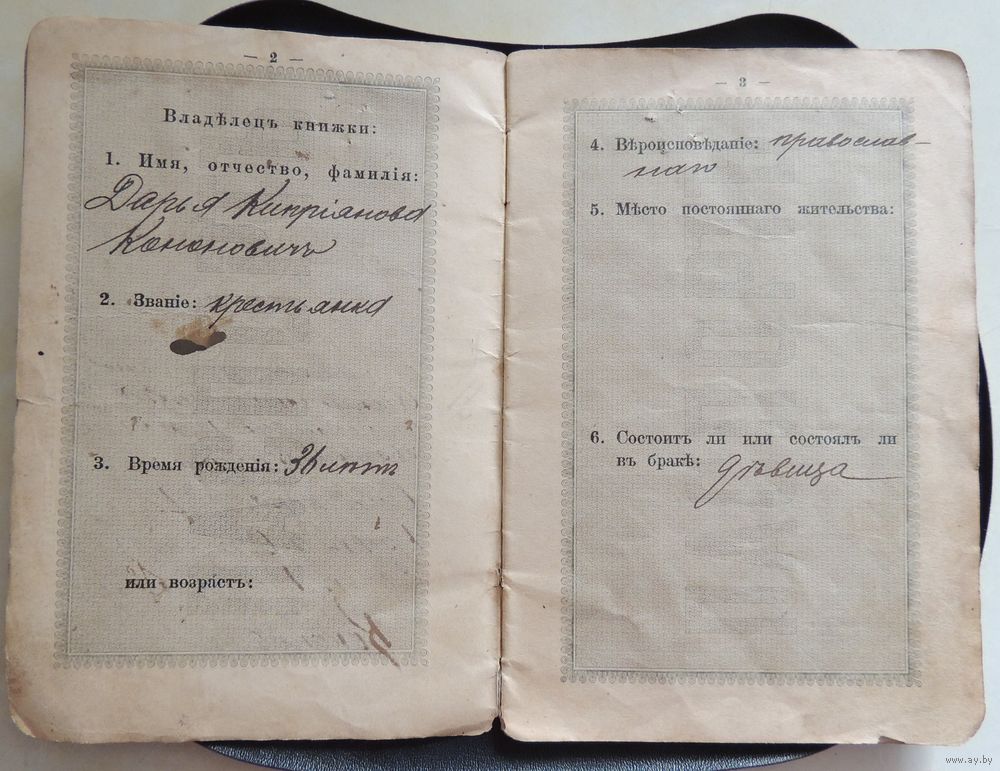 — 2 —
Владѣлецъ книжки:
1. Имя, отчество, фамилія:
Дарья Кипріянова
Кононовичъ
2. Званіе: крестьянка
3. Время рожденія: 36 лѣтъ
или возрастъ:
— 3 —
4. Вѣроисповѣданіе: православ-
наго
5. Мѣсто постояннаго жительства:
6. Состоитъ ли или состоялъ ли
въ бракѣ: дѣвица
www.ay.by